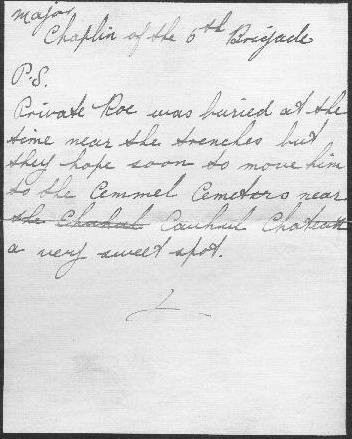 Major
Chaplin of the 6th Brigade
P.S.
Private Roe was buried at the
time near the trenches but
they hope soon to move him
to the Cemmel Cemeters near
the Chahal Cauhul Chateau
a very sweet spot.